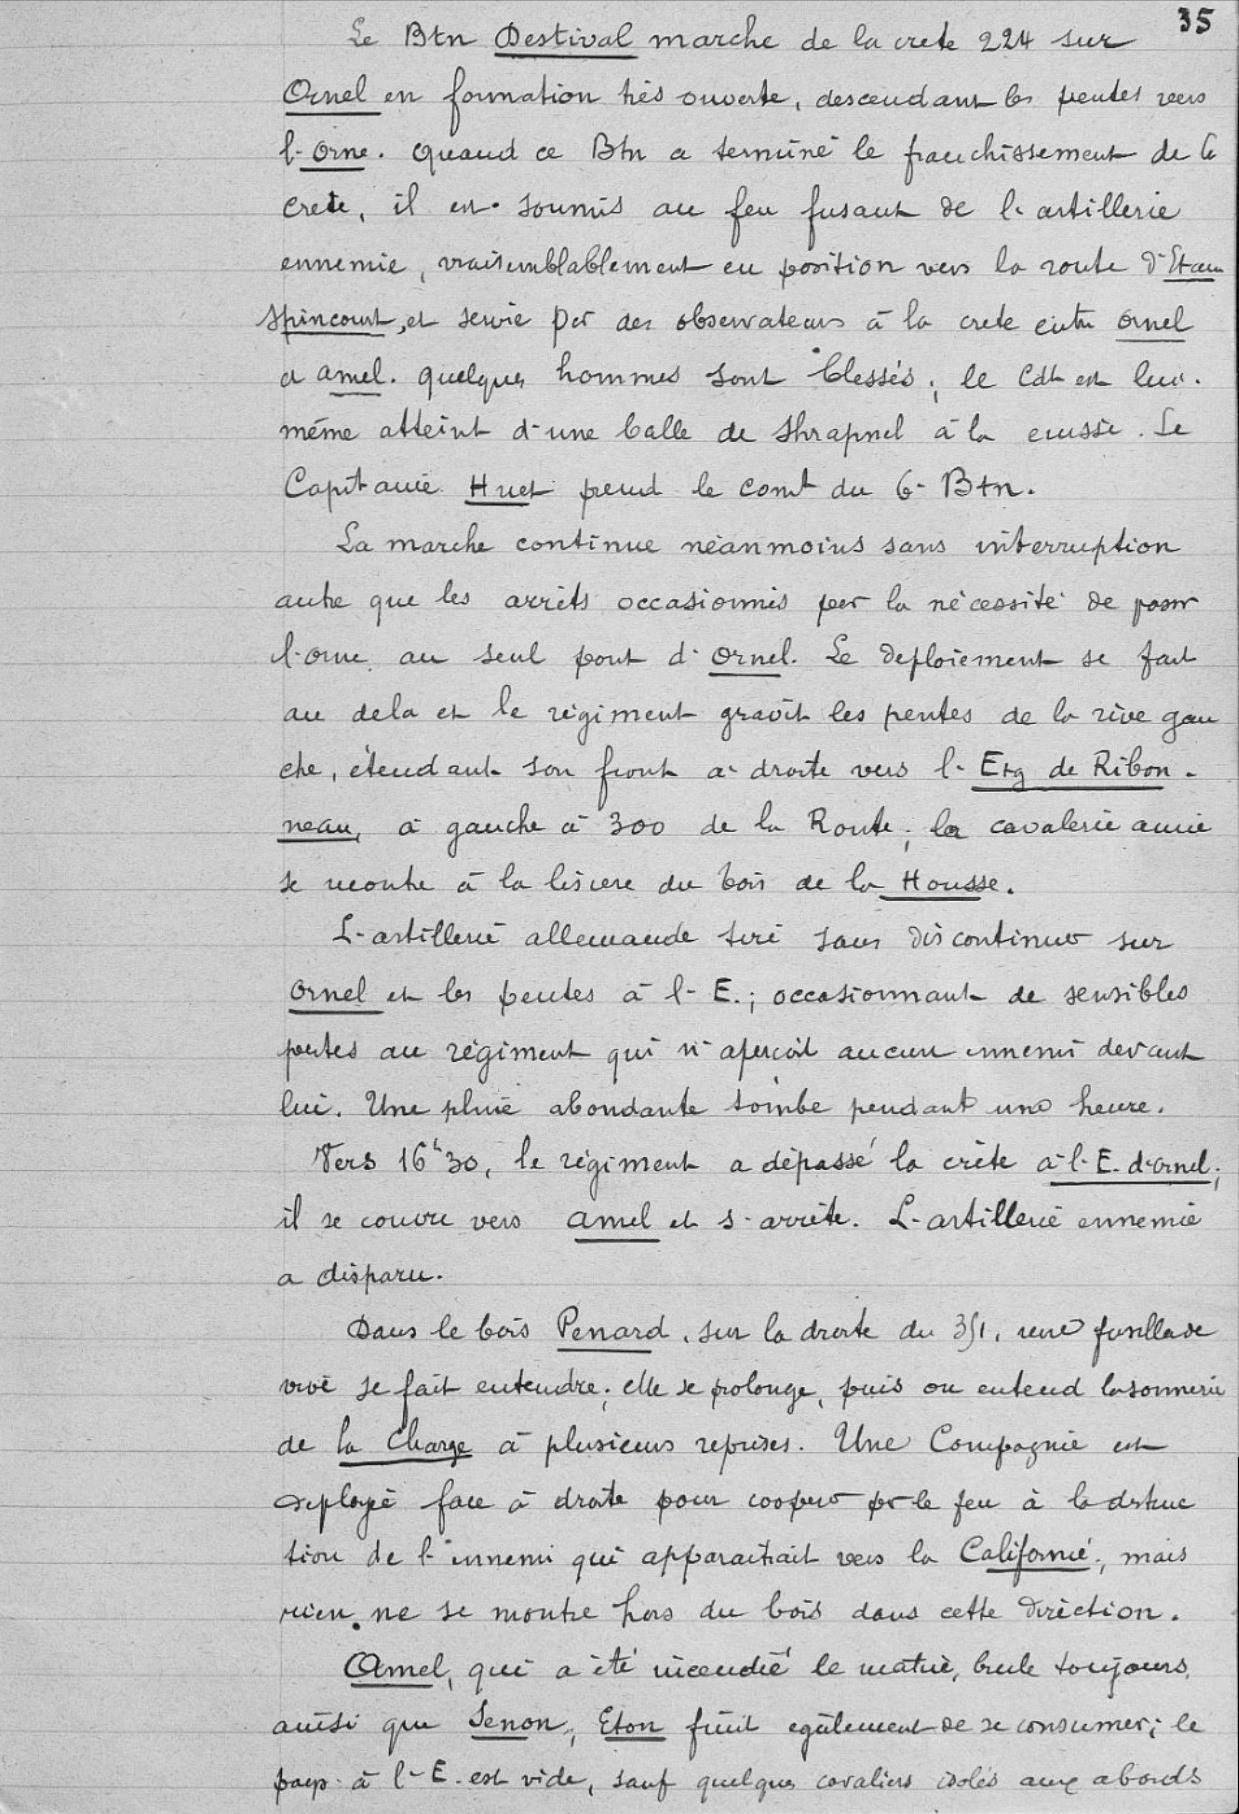 35
Le Btn Destival marche de la crete 224 sur
Ornel en formation très ouverte, descendant les pentes vers
l'Orne. Quand ce Btn a terminé le franchissement de la
crete, il est soumis au feu fusant de l'artillerie
ennemie, vraisemblablement en position vers la route d'Etain
Spincourt, et servie par des observateurs à la crete entre Ornel
et Amel. Quelques hommes sont blessés; le Cdt est lui-
même atteint d'une balle de shrapnel à la cuisse. Le
Capitaine Huet prend le comt du 6e Btn.
La marche continue néanmoins sans interruption
autre que les arrêts occasionnés par la nécessité de passer
l'Orne au seul pont d'Ornel. Le deploiement se fait
au dela et le régiment gravit les pentes de la rive gau
che, étendant son front à droite vers l'Etg de Ribon-
neau, à gauche à 300 de la Route; la cavalerie amie
se montre à la lisiere du bois de la Housse.
L'artillerie allemande tire sans discontinuer sur
Ornel et les pentes à l'E.; occasionnant de sensibles
pertes au régiment qui n'aperçoit aucun ennemi devant
lui. Une pluie abondante tombe pendant une heure.
Vers 16h30, le régiment a dépassé la crête à l'E. d'Ornel;
il se couvre vers Amel et s'arrête. L'artillerie ennemie
a disparu.
Dans le bois Penard, sur la droite du 351, une fusillade
vive se fait entendre; elle se prolonge, puis on entend la sonnerie
de la Charge à plusieurs reprises. Une Compagnie est
deployée face à droite pour cooperer pr le feu à la destruc
tion de l'ennemi qui apparaitrait vers la Californie; mais
rien ne se montre hors du bois dans cette direction.
Amel, qui a été incendié le matin, brule toujours,
ainsi que Senon; Eton finit egalement de se consumer; le
pays à l'E. est vide, sauf quelques cavaliers isolés aux abords